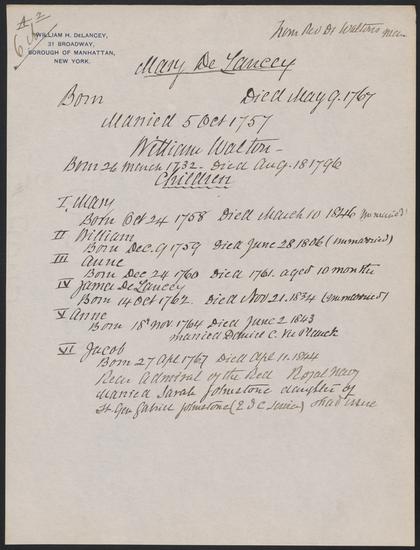 WILLIAM H. DeLANCEY,
31 BROADWAY,
BOROUGH OF MANHATTAN,
NEW YORK.
From Rev Dr Waltons
Mary De Lancey
Born Died May 9. 1767
Married 5 Oct 1757
William Walton-
Born 26 March 1732- Died Aug. 18 1796
Children
I. Mary
Born Oct 24 1758 Died March 10 1846
II William
Born Dec. 9 1759 Died June 28 1806 (Unmarried)
III Anne
Born Dec 24 1760 Died 1761. aged 10 months
IV James DeLancey
Born 14 Oct 1762. Died Nov 21. 1834 (Unmarried)
V Anne
Born 18 Nov 1764 Died June 2 1843
married Daniel C. Ver Planck
VI Jacob
Born 27 Apl 1767 Died Apl 11. 1844
Rear Admiral of the Red Royal Navy
married Sarah Johnstone daughter of
Lt Gen Gabriel Johnstone (E I C Service) & had issue